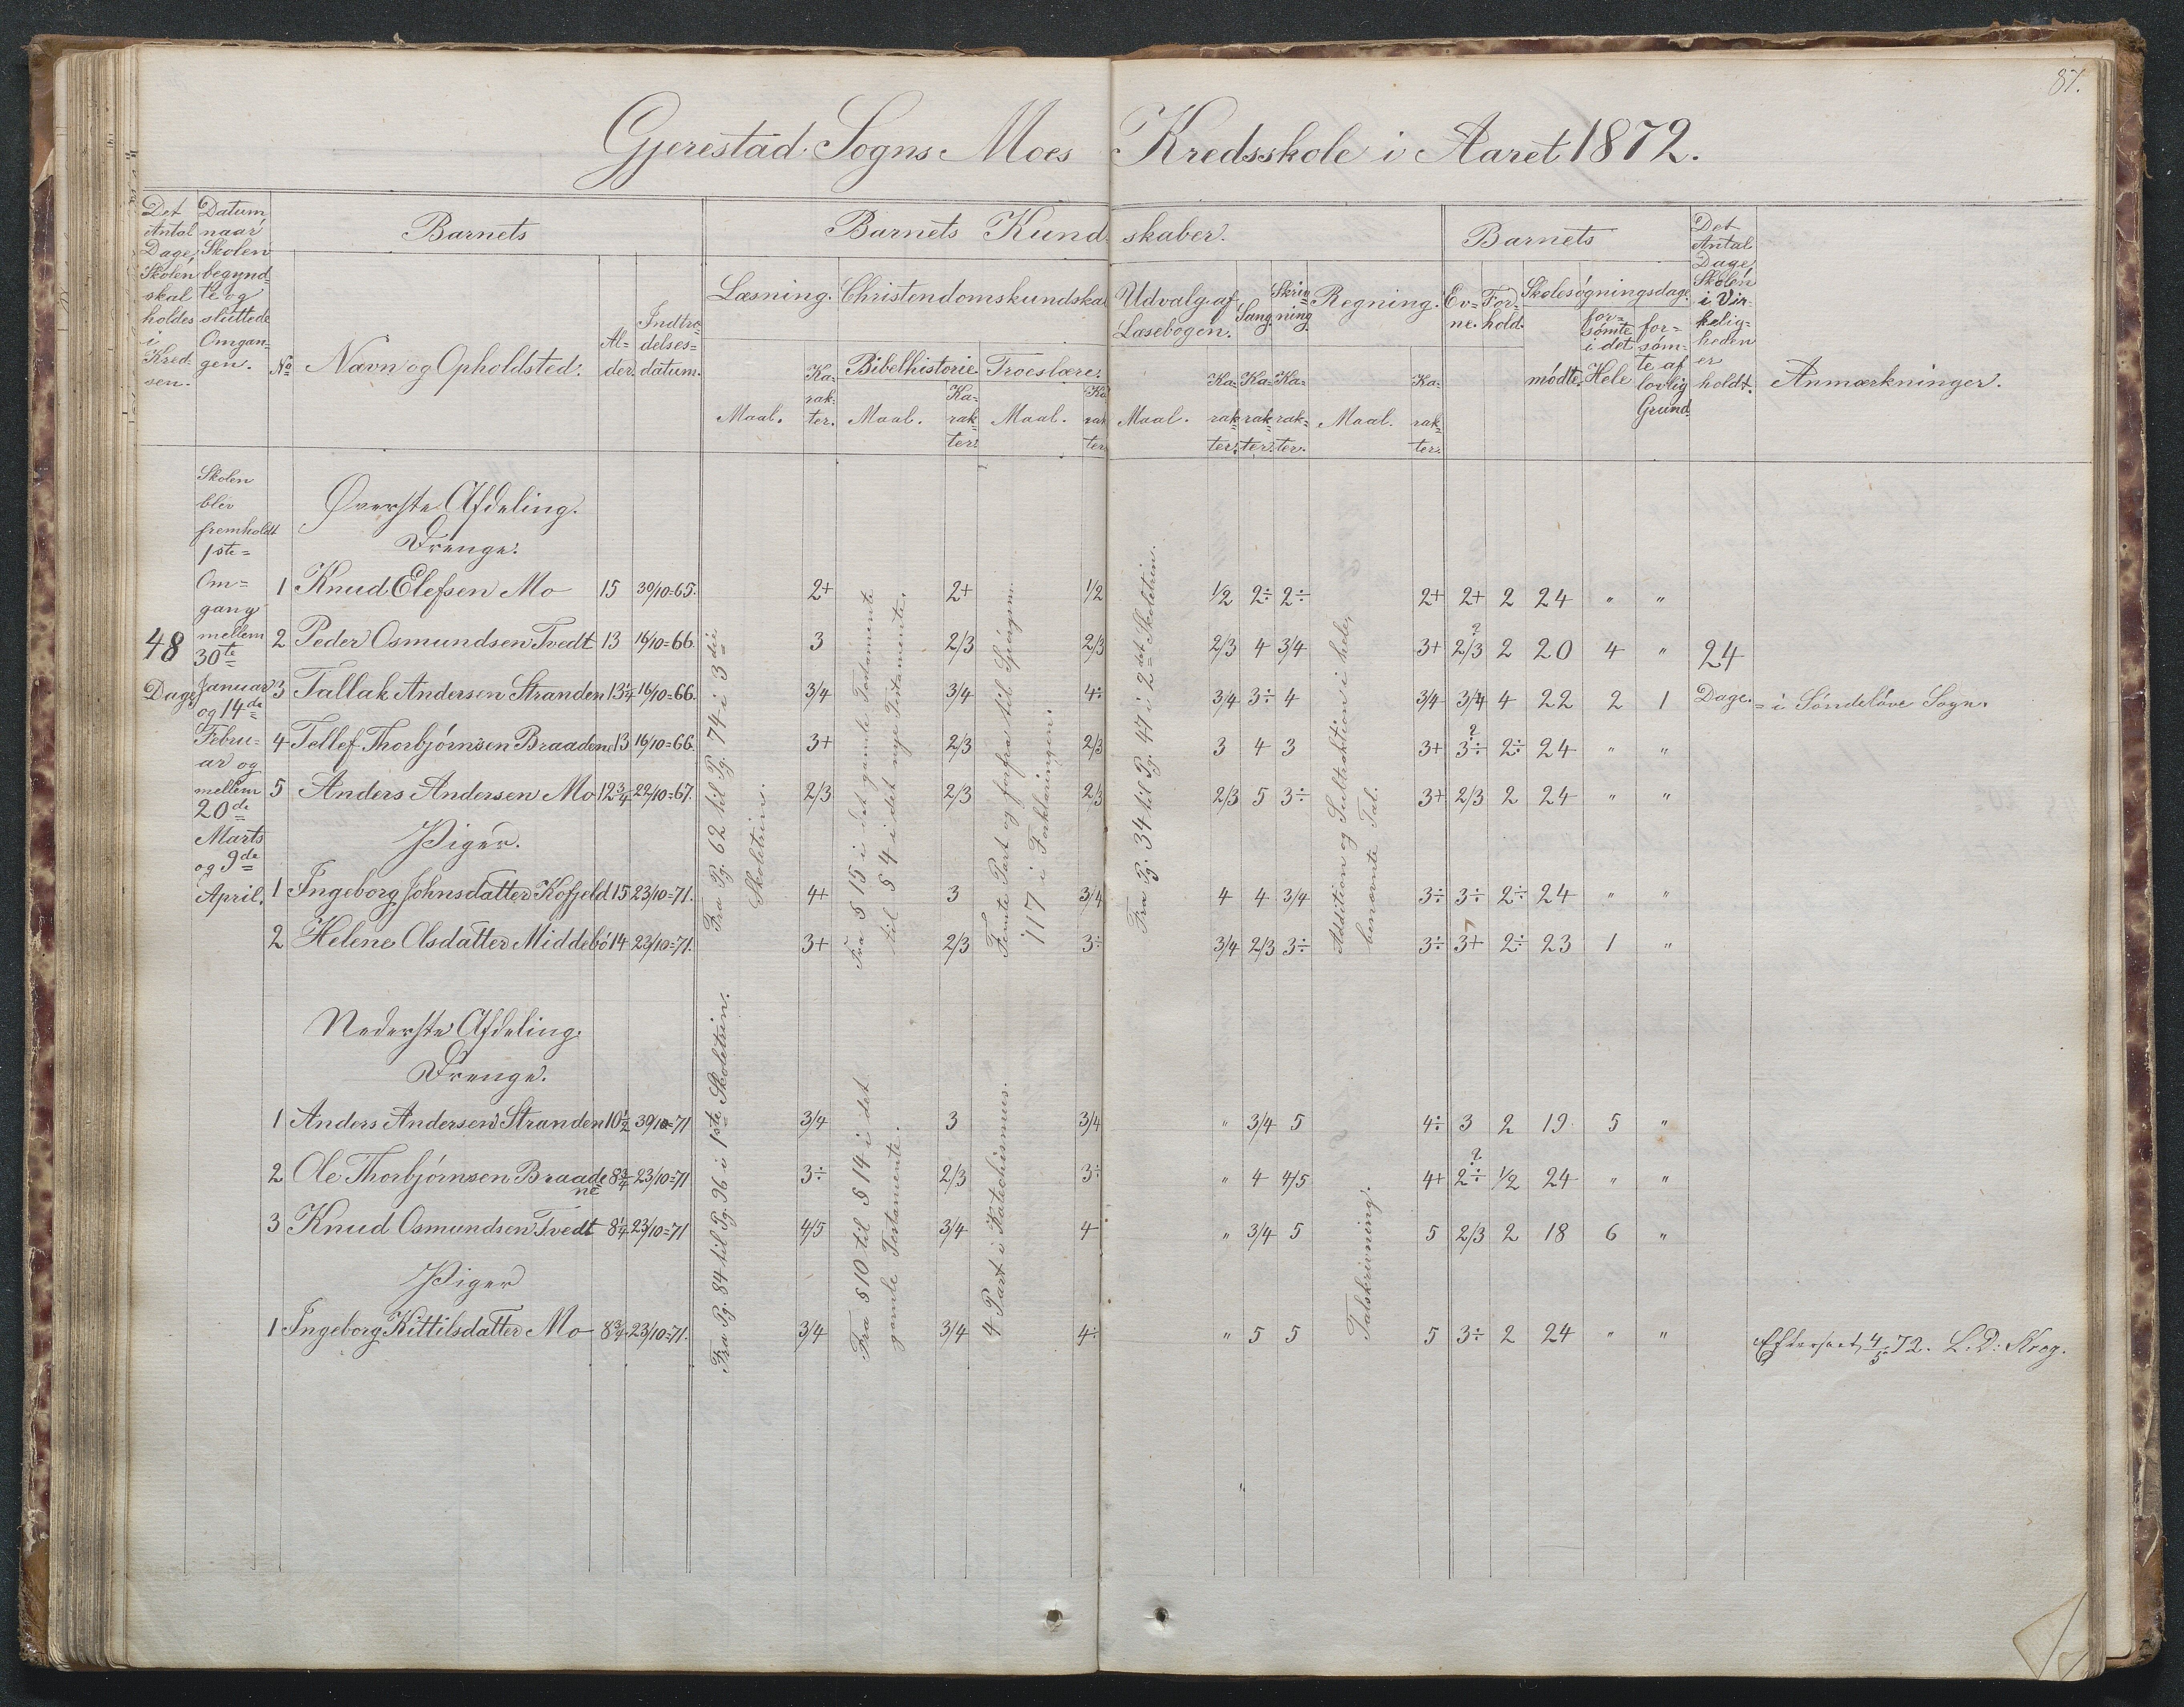 87.
Gjerestad Sogns Moes Kredsskole i Aaret 1872.
Det Antal Dage, Skolen skal holdes i Kredsen.
Datum naar Skolen begyndte og sluttede Omgangen.
Barnets
No
Navn og Opholdsted.
Alder.
Indtrædelsesdatum.
Barnets Kundskaber.
Læsning.
Maal.
Karakter.
Christendomskundskab
Bibelhistorie
Maal.
Karakter.
Troeslære.
Maal.
Karakter
Udvalg af Læsebogen.
Maal.
Karakter.
Sang.
Karakter.
Skrivning
Karakter.
Regning.
Maal.
Karakter.
Barnets
Evne.
Forhold.
Skolesøgningsdage.
mødte
forsømte i det Hele
forsømte af lovlig Grund
Det Antal Dage Skolen i Virkeligheden er holdt.
Anmærkninger.
48 Dage
Skolen
blev
fremholdt
1ste
Om=
gang
mellem
30te
Januar
og 14de
Febru=
ar og
mellem
20de
Marts
og 9de
April.
Øverste Afdeling.
Drenge.
1 Knud Elefsen Mo 15 30/10=65. 2+ 2+ 1/2 1/2 2÷ 2÷ 2+ 2+ 2 24 " "
2 Peder Osmundsen Tvedt 13 16/10=66. 3 2/3 2/3 2/3 4 3/4 3+ 2/3? 2 20 4 " 24
3 Tallak Andersen Stranden 13 1/4 16/10=66. 3/4 3/4 4÷ 3/4 3÷ 4 3/4 3/4 4 22 2 1 Dage. = i Søndeløve Sogn.
4 Tellef Thorbjørnsen Braadene 13 16/10=66. 3+ 2/3 2/3 3 4 3 3+ 3÷? 2÷ 24 " "
5 Anders Andersen Mo 12 3/4 22/10=67. 2/3 2/3 2/3 2/3 5 3÷ 3+ 2/3 2 24 " "
Piger.
1 Ingeborg Johnsdatter Kofjeld 15 23/10=71. 4+ 3 3/4 4 4 3/4 3÷ 3÷ 2÷ 24 " "
2 Helene Olsdatter Middebø 14 23/10=71. 3+ 2/3 3÷ 3/4 2/3 3÷ 3÷ 3+ 2÷ 23 1 "
Fra Pg. 62 til Pg. 74 i 3die
Skoletrin.
Fra § 15 i det gamle Testamente
til § 4 i det nye Testamente.
Femte Part og forfra til Spørgsm.
117 i Forklaringen.
Fra Pg. 34 til Pg. 47 i 2det Skoletrin.
Addition og Subtraktion i hele,
benævnte Tal.
Nederste Afdeling.
Drenge.
1 Anders Andersen Stranden 10 1/2 30/10=71 3/4 3 3/4 " 3/4 5 4÷ 3 2 19 5 "
2 Ole Thorbjørnsen Braadene 8 3/4 23/10=71 3÷ 2/3 3÷ " 4 4/5 4+ 2÷? 1/2 24 " "
3 Knud Osmundsen Tvedt 8 1/4 23/10=71 4/5 3/4 4 " 3/4 5 5 2/3 2 18 6 "
Piger
1 Ingeborg Kittilsdatter Mo 8 3/4 23/10=71. 3/4 3/4 4÷ " 5 5 5 3÷ 2 24 " "
Fra Pg. 84 til Pg. 96 i 1ste Skoletrin.
Fra § 10 til § 14 i det
gamle Testamente.
4 Part i Katechismus.
Talskrivning.
Efterseet 4/5 72. L. D: Krog.